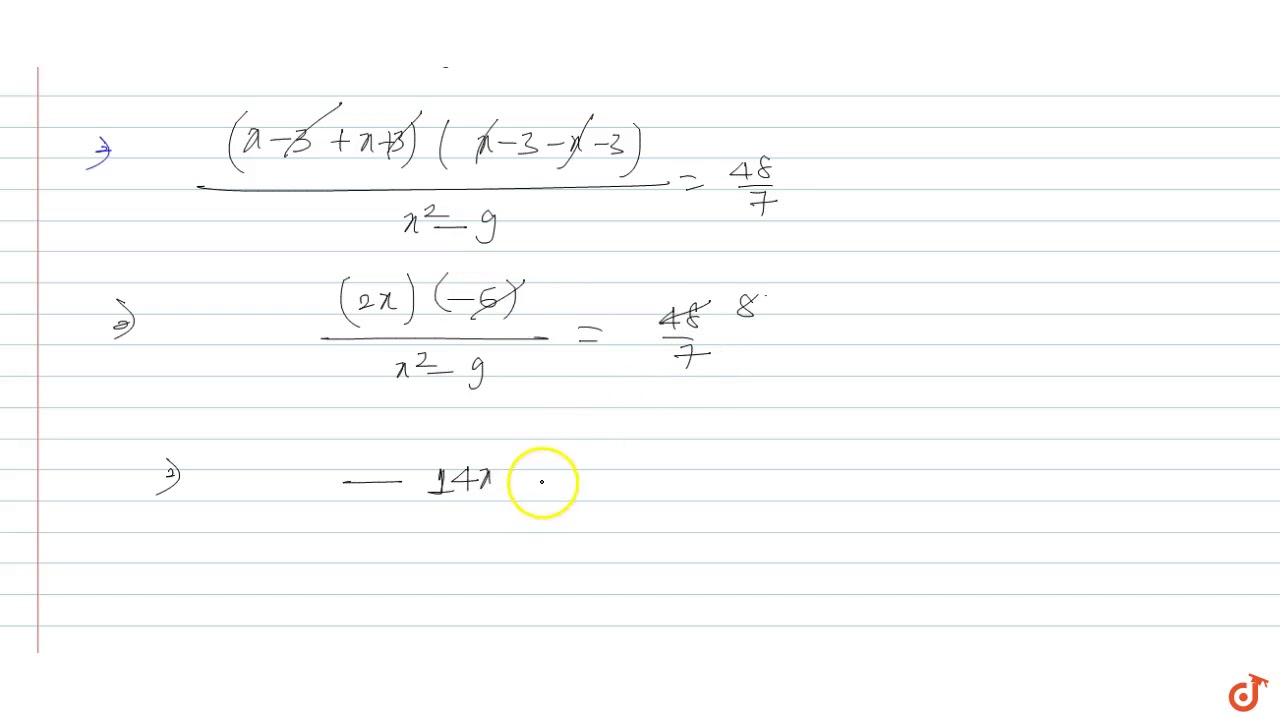 ⇒ (x-3+x+3)(x-3-x-3)/(x²-9) = 48/7
⇒ (2x)(-6)/(x²-9) = 48/7 8
⇒ -14x